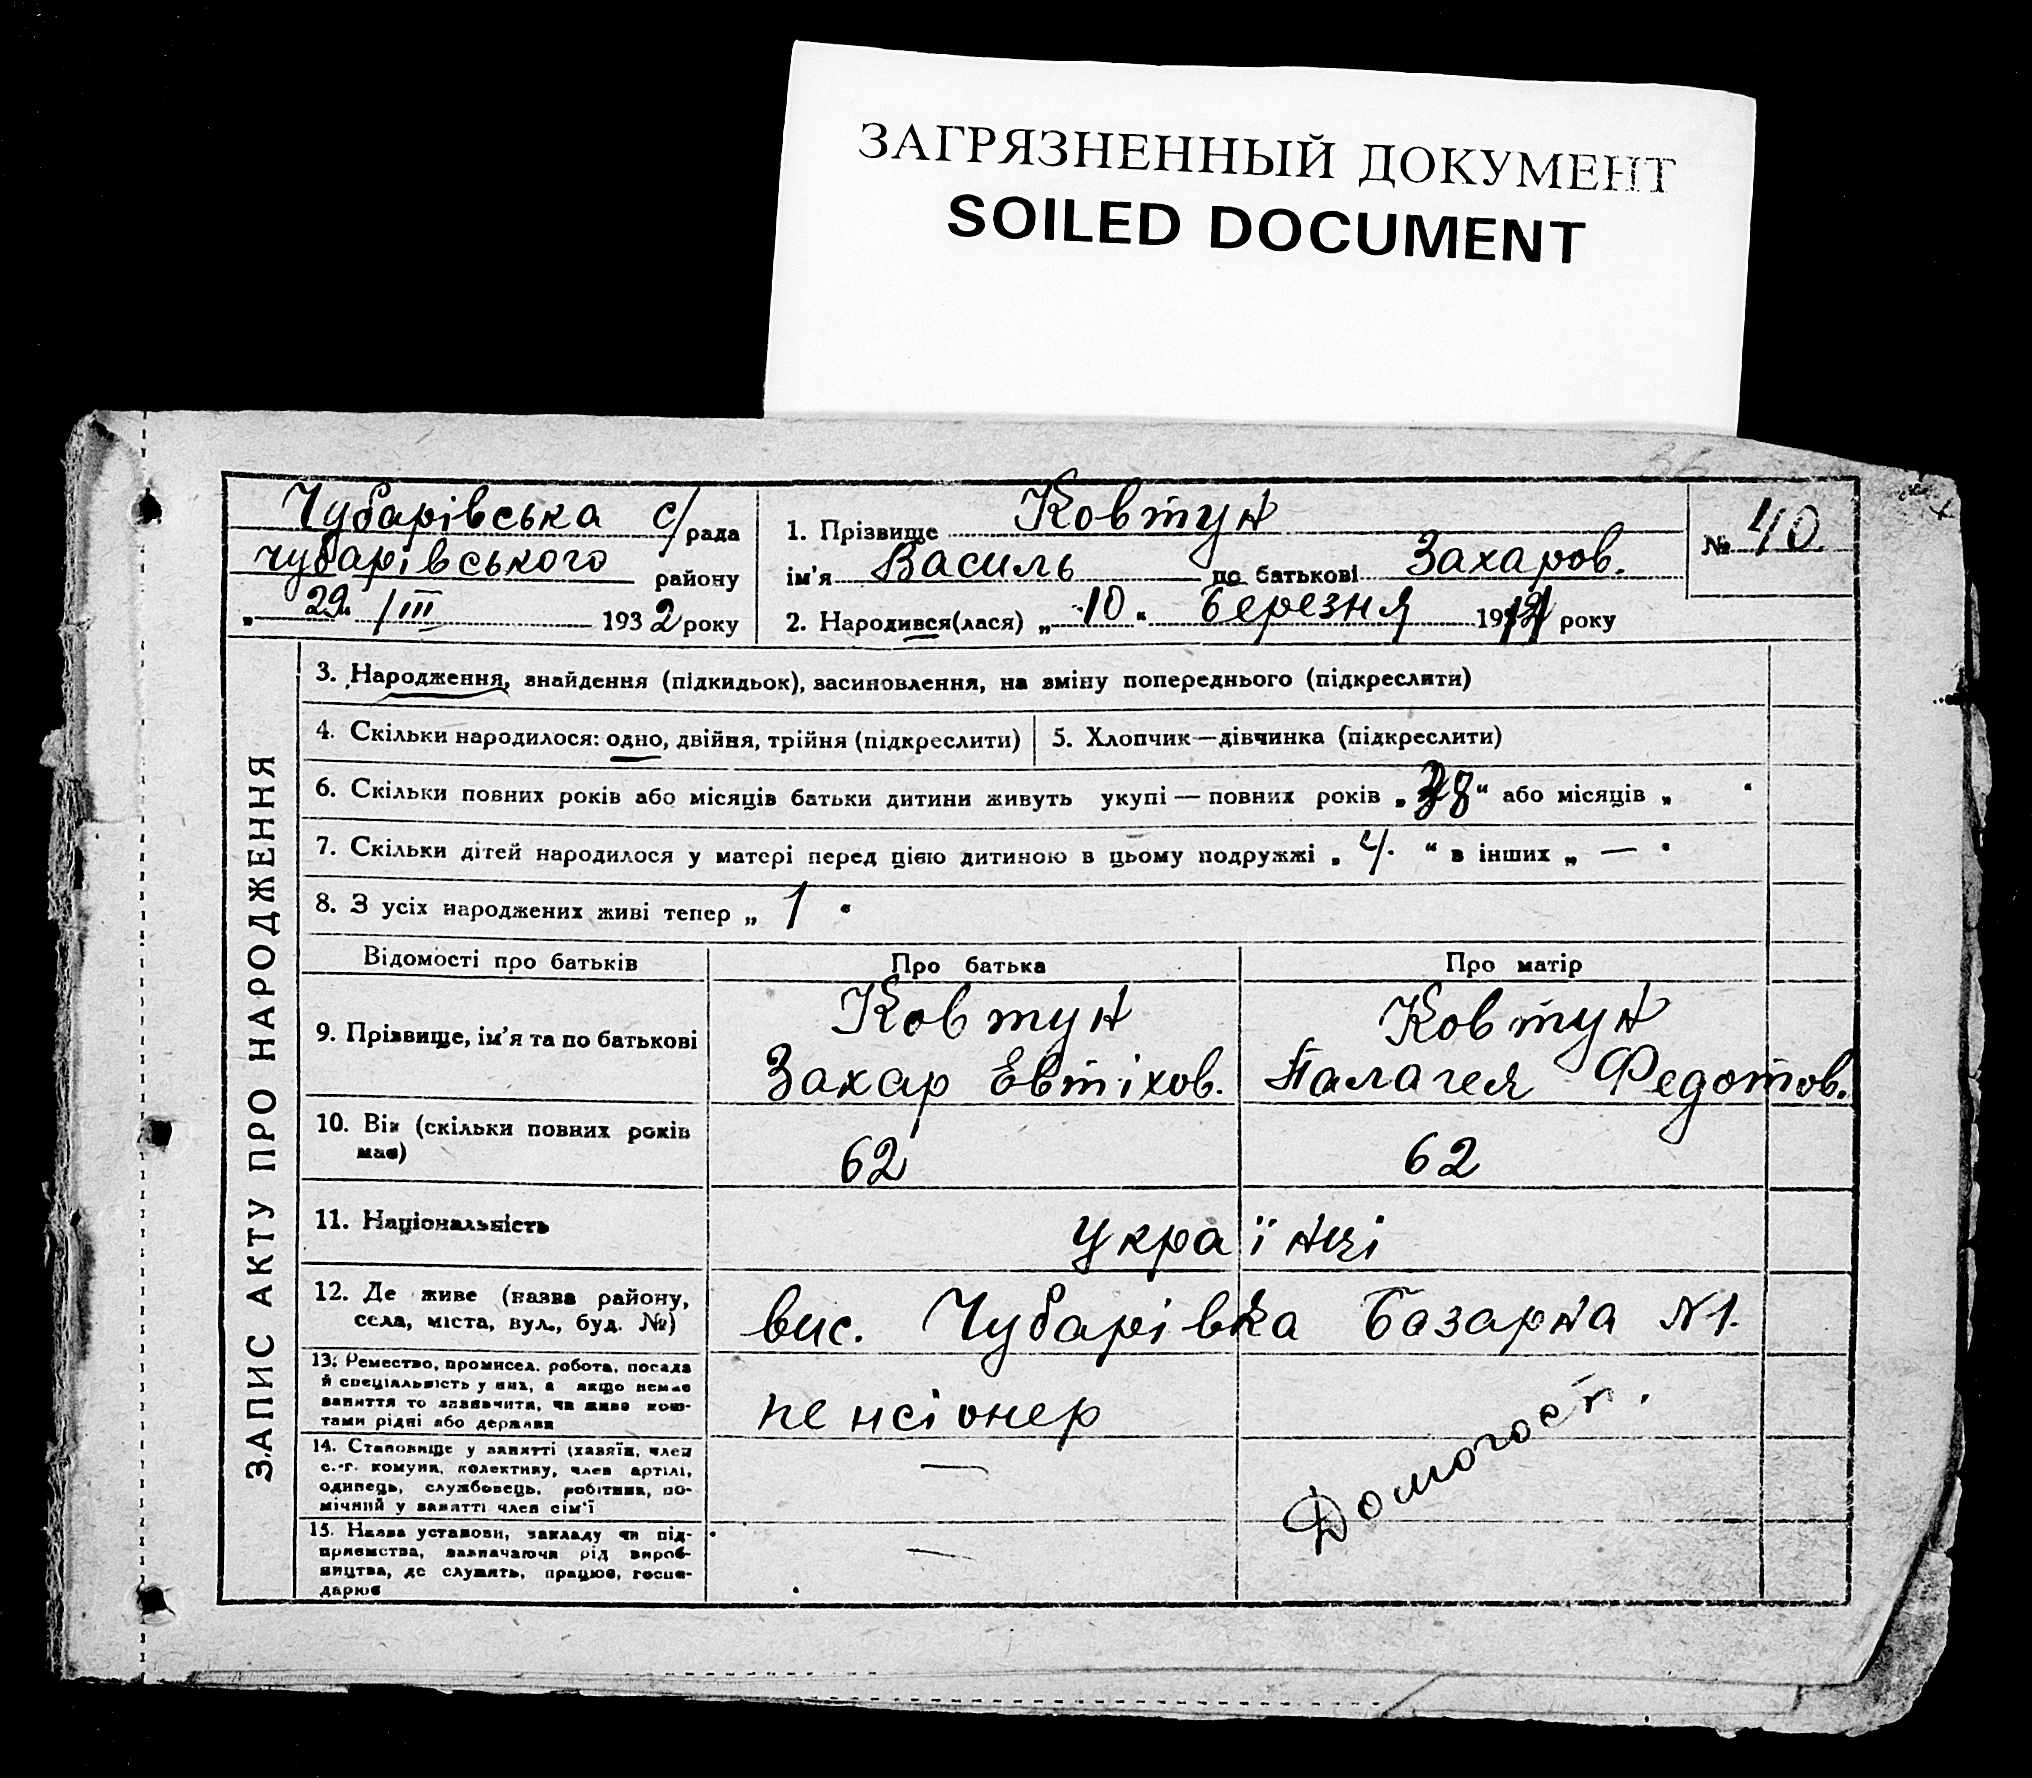 ЗАГРЯЗНЕННЫЙ ДОКУМЕНТ
SOILED DOCUMENT
Чубарівська с/рада
чубарівського району
„ 29. /III 1932 року
1. Прізвище Ковтун
ім'я Василь по батькові Захаров.
2. Народився(лася) „ 10 " березня року
№ 40.
ЗАПИС АКТУ ПРО НАРОДЖЕННЯ
3. Народження, знайдення (підкидьок), засиновлення, на зміну попереднього (підкреслити)
4. Скільки народилося: одно, двійня, трійня (підкреслити)
5. Хлопчик—дівчинка (підкреслити)
6. Скільки повних років або місяців батьки дитини живуть укупі — повних років „ 38 " або місяців „ "
7. Скільки дітей народилося у матері перед цією дитиною в цьому подружжі „ 4. " в інших „ — "
8. З усіх народжених живі тепер „ 1 "
Відомості про батьків Про батька Про матір
9. Прізвище, ім'я та по батькові
Ковтун
Захар Евтіхов.
Ковтун
Палагея Федотов.
10. Вік (скільки повних років
має)
62 62
11. Національність українці
12. Де живе (назва району,
села, міста, вул., буд. №)
вис. Чубарівка Базарна №1.
13. Ремество, промисел, робота, посада
й спеціальність у них, а якщо немає
заняття то зазначити, чи живе кош-
тами рідні або держави
пенсіонер
14. Становище у занятті (хазяїн, член
с.-г. комуни, колективу, член артілі,
одинець, службовець, робітник, по-
мічний у занятті член сім'ї
—
15. Назва установи, закладу чи під-
приємства, зазначаючи рід вироб-
ництва, де служить, працює, госпо-
дарює
—
Домогосп.